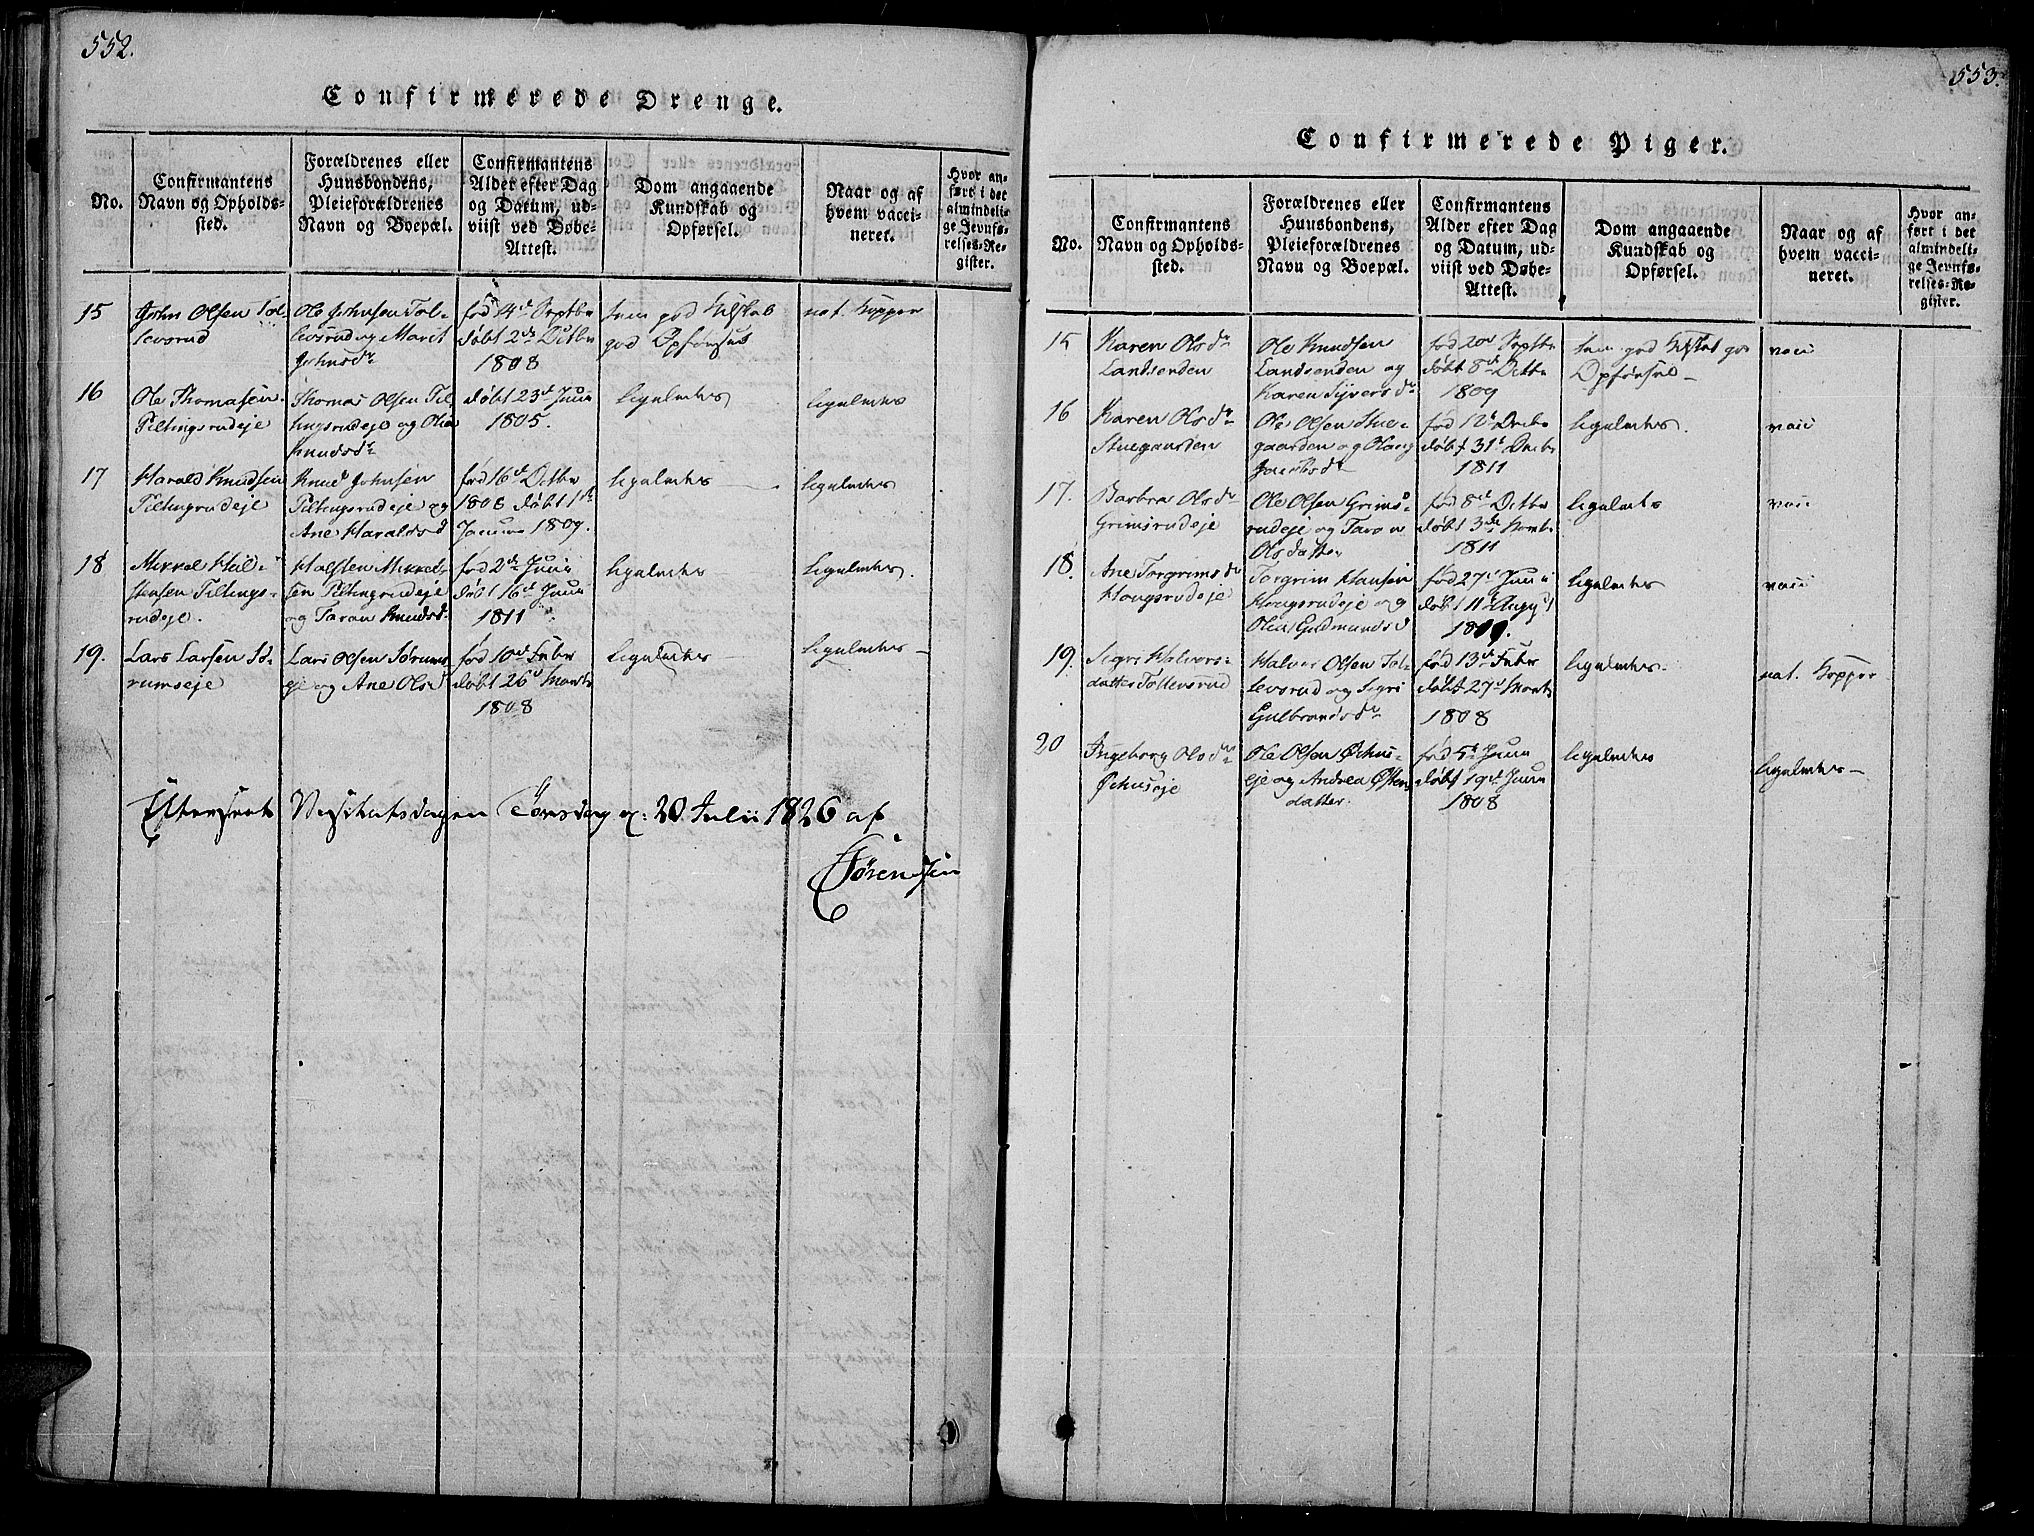 552.
Confirmerede Drenge.
No.
Confirmantens
Navn og Opholds-
sted.
Forældrenes eller
Huusbondens,
Pleieforældrenes
Navn og Boepæl.
Confirmantens
Alder efter Dag
og Datum, ud-
viist ved Døbe-
Attest.
Dom angaaende
Kundskab og
Opførsel.
Naar og af
hvem vacci-
neret.
Hvor an-
ført i det
almindeli-
ge Jevnfø-
relses-Re-
gister.
15
John Olsen Tol-
levsrud
Ole Johnsen Tol-
levsrud og Marit
Johnsdr
født 14de Septbr
døbt 2de Octbr
1808
god
god Opførsel
nat. Kopper
16
Ole Thomasen
Tiltingsrudeje
Thomas Olsen Til-
tingsrudeje og Olia
Knudsdr
døbt 23de Juni
1805.
ligeledes
ligeledes
17
Harald Knudsen
Tiltingrudeje
Knud Johnsen
Tiltingsrudeje og
Ane Haraldsd
fød 16de Octbr
1808 døbt 1ste
Januar 1809.
ligeledes
ligeledes
18
Mikkel Hal-
stensen Tiltings-
rudeje.
Halsten Mikkel-
sen Tiltingrudeje
og Taran Knudsd.
fød 2de Juni
døbt 16de Juni
1811
ligeledes
ligeledes.
19.
Lars Larsen Sø-
rumseje
Lars Olsen Sørums-
eje og Ane Olsd
fød 10de Febr
døbt 26d Marts
1808
ligeledes
ligeledes
Efterseet Visitatsdagen Torsdag d: 20 Julii 1826 af
Sørenssen
553.
Confirmerede Piger.
No.
Confirmantens
Navn og Opholds-
sted.
Forældrenes eller
Huusbondens,
Pleieforældrenes
Navn og Boepæl.
Confirmantens
Alder efter Dag
og Datum, ud-
viist ved Døbe-
Attest.
Dom angaaende
Kundskab og
Opførsel.
Naar og af
hvem vacci-
neret.
Hvor an-
ført i det
almindeli-
ge Jevnfø-
relses-Re-
gister.
15
Karen Olsdr
Landsenden
Ole Knudsen
Landsenden og
Karen Syversdr
fød 20de Septbr
døbt 8de Octbr
1809
god
Opførsel
vacc
16
Karen Olsdr
Stuegaarden
Ole Olsen Stue-
gaarden og
Jacobsdr
fød 12te Decbr
døbt 31te Decbr
1811
ligeledes.
vacc
17.
Barbra Olsdr
Grimsrudeje
Ole Olsen Grims-
rudeje og Taron
Olsdatter
fød 8de Octbr
døbt 3die Novbr
1811
ligeledes
vacc
18.
Ane Torgrimsdr
Hougsrudeje
Torgrim Hansen
Hougsrudeje og
Olia Gudmundsd
fød 27de Juni
døbt 11te Augst
1809.
ligeledes
vacc
19.
Sigri Halvors-
datter Tollevsrud
Halvor Olsen Tol-
levsrud og Sigri
Gulbrandsdr
fød 13de Febr
døbt 27de Marts
1808
ligeledes.
nat. Kopper
20
Ingeborg Olsdr
Øchuseje
Ole Olsen Øchus-
eje og Andrea Østens
datter.
fød 5te Juni
døbt 19de Juni
1808
ligeledes
ligeledes